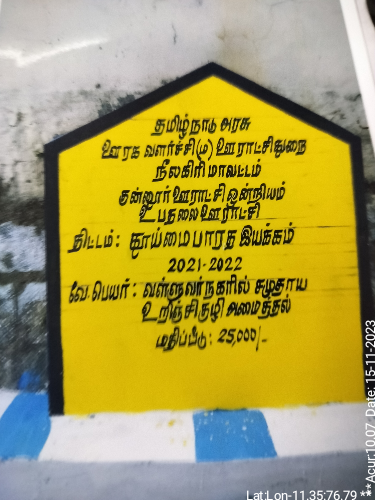 தமிழ்நாடு அரசு
ஊரக வளர்ச்சி(ம) ஊராட்சிதுறை
நீலகிரி மாவட்டம்
குன்னூர் ஊராட்சி ஒன்றியம்
உபதலை ஊராட்சி
திட்டம்: தூய்மை பாரத இயக்கம்
2021-2022
வே.பெயர்: வள்ளுவர் நகரில் சமுதாய
உறிஞ்சிகுழி அமைத்தல்
மதிப்பீடு: 25,000/-
Lat:Lon-11.35:76.79 ***Acur:10.07, Date: 15-11-2023